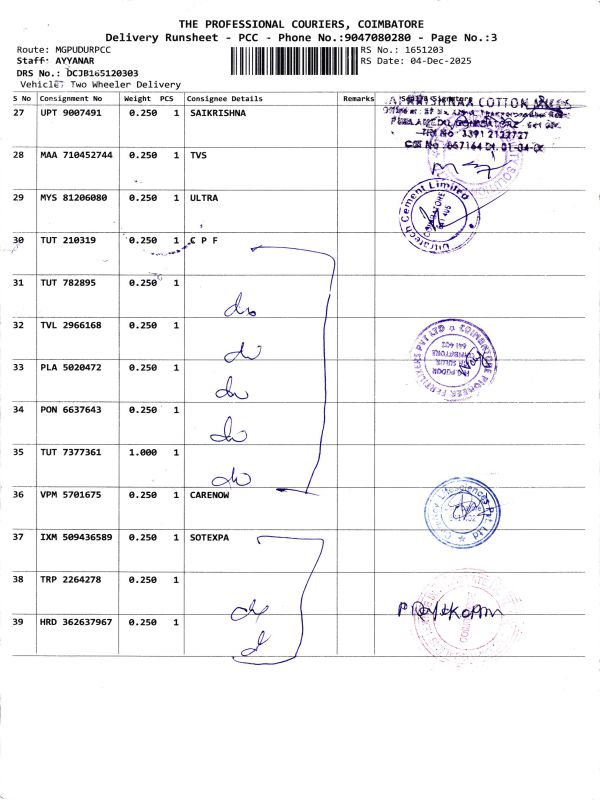 THE PROFESSIONAL COURIERS, COIMBATORE
Delivery Runsheet - PCC - Phone No.:9047080280 - Page No.:3
Route: MGPUDURPCC RS No.: 1651203
Staff: AYYANAR RS Date: 04-Dec-2025
DRS No.: DCJB165120303
Vehicle: Two Wheeler Delivery
S No Consignment No Weight PCS Consignee Details Remarks
27 UPT 9007491 0.250 1 SAIKRISHNA
COTTON MILLS
28 MAA 710452744 0.250 1 TVS
29 MYS 81206080 0.250 1 ULTRA
Ultratech Cement Limited
COIMBATORE
30 TUT 210319 0.250 1 C P F
31 TUT 782895 0.250 1
32 TVL 2966168 0.250 1
COIMBATORE PIONEER FERTILIZERS PVT LTD
641 402
33 PLA 5020472 0.250 1
34 PON 6637643 0.250 1
35 TUT 7377361 1.000 1
36 VPM 5701675 0.250 1 CARENOW
Lifesciences Pvt Ltd
37 IXM 509436589 0.250 1 SOTEXPA
38 TRP 2264278 0.250 1
39 HRD 362637967 0.250 1